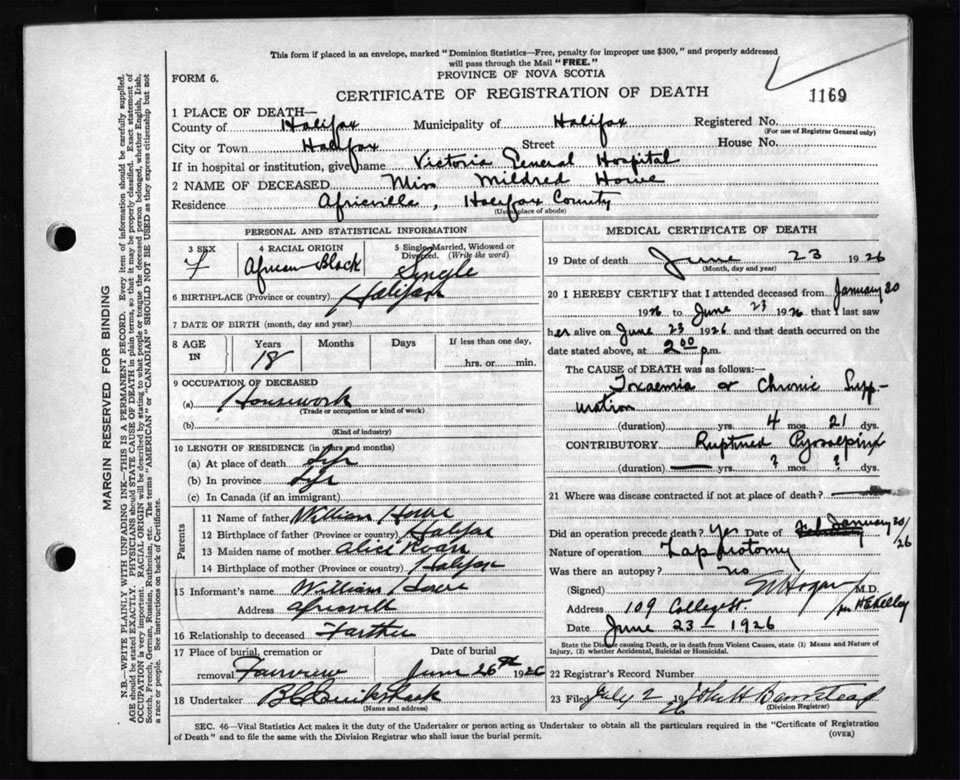 This form if placed in an envelope, marked "Dominion Statistics—Free, penalty for improper use $300," and properly addressed
will pass through the Mail "FREE."
PROVINCE OF NOVA SCOTIA
FORM 6.
CERTIFICATE OF REGISTRATION OF DEATH
1169
1 PLACE OF DEATH—
County of Halifax Municipality of Halifax Registered No.
(For use of Registrar General only)
City or Town Halifax Street House No.
If in hospital or institution, give name Victoria General Hospital
2 NAME OF DECEASED Miss Mildred Howe
Residence Africville, Halifax County
(Usual place of abode)
PERSONAL AND STATISTICAL INFORMATION
3 SEX
F
4 RACIAL ORIGIN
African Black
5 Single, Married, Widowed or
Divorced. (Write the word)
Single
6 BIRTHPLACE (Province or country) Halifax
7 DATE OF BIRTH (month, day and year)
8 AGE IN
Years Months Days If less than one day,
18
hrs. or min.
9 OCCUPATION OF DECEASED
(a) Housework
(Trade or occupation or kind of work)
(b)
(Kind of industry)
10 LENGTH OF RESIDENCE (in years and months)
(a) At place of death Life
(b) In province Life
(c) In Canada (if an immigrant)
Parents
11 Name of father William Howe
12 Birthplace of father (Province or country) Halifax
13 Maiden name of mother Alice
14 Birthplace of mother (Province or country) Halifax
15 Informant's name William Howe
Address Africvill
16 Relationship to deceased Farther
17 Place of burial, cremation or
removal Fairview
Date of burial
June 26th 1926
18 Undertaker Cruikshank
(Name and address)
MEDICAL CERTIFICATE OF DEATH
19 Date of death June 23 1926
(Month, day and year)
20 I HEREBY CERTIFY that I attended deceased from January 20
1926 to June 23 1926 that I last saw
her alive on June 23 1926 and that death occurred on the
date stated above, at 2 00 p.m.
The CAUSE OF DEATH was as follows:—
Toxaemia or Chronic Supp-
uration
(duration) yrs. 4 mos. 21 dys.
CONTRIBUTORY Ruptured Pyosalpinx
(duration) — yrs. ? mos. ? dys.
21 Where was disease contracted if not at place of death? —
Did an operation precede death? Yes Date of January 20/26
Nature of operation Laparotomy
Was there an autopsy? no
(Signed) Hogan M.D.
per H E Kelley
Address 109 College St
Date June 23 1926
State the Disease causing Death, or in death from Violent Causes, state (1) Means and Nature of
Injury, (2) whether Accidental, Suicidal or Homicidal.
22 Registrar's Record Number
23 Filed July 2 1926 John H Barnstead
(Division Registrar)
SEC. 46—Vital Statistics Act makes it the duty of the Undertaker or person acting as Undertaker to obtain all the particulars required in the "Certificate of Registration
of Death" and to file the same with the Division Registrar who shall issue the burial permit.
(OVER)
MARGIN RESERVED FOR BINDING
N.B.—WRITE PLAINLY WITH UNFADING INK—THIS IS A PERMANENT RECORD. Every item of information should be carefully supplied.
AGE should be stated EXACTLY. PHYSICIANS should STATE CAUSE OF DEATH in plain terms, so that it may be properly classified. Exact statement of
OCCUPATION is very important. RACIAL ORIGIN will be described by stating to what people or tongue the deceased person belonged, whether English, Irish,
Scotch, French, German, Russian, Ruthenian, etc. The terms "AMERICAN" or "CANADIAN" SHOULD NOT BE USED as they express citizenship but not
a race or people. See instructions on back of Certificate.